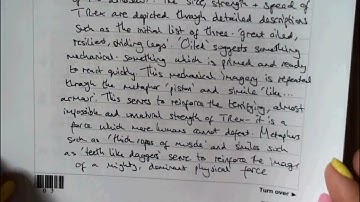 The size, strength + speed of
T.Rex are depicted through detailed descriptions
such as the initial list of three - 'great oiled,
resilient, striding legs'. 'Oiled' suggests something
mechanical - something which is primed and ready
to react quickly. This mechanical imagery is repeated
through the metaphor 'piston' and simile 'like...
armour'. This serves to reinforce the terrifying, almost
impossible and unnatural strength of T.Rex - it is a
force which mere humans cannot defeat. Metaphors
such as 'thick ropes of muscle' and similes such
as 'teeth like daggers' serve to reinforce the image
of a mighty, dominant physical force
Turn over ►